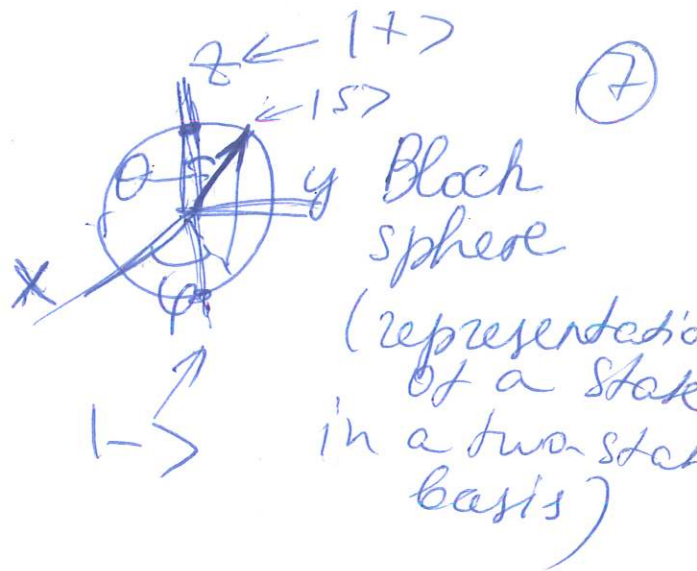 z ← |+>
← |s>
7
θ
y
Bloch
sphere
x
φ
(representatio
of a state
|->
in a two state
basis)